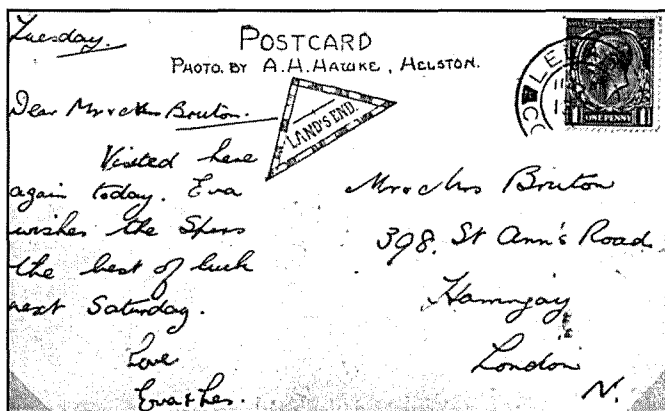 Tuesday.
POSTCARD
PHOTO. BY A.H. HAWKE, HELSTON.
LAND'S END.
ONE PENNY
Dear Mr & Mrs Bruton.
Visited here
again today. Eva
wishes the Spurs
the best of luck
next Saturday.
Love
Eva & Les.
Mr & Mrs Bruton
398. St Ann's Road
Harringay
London
N.